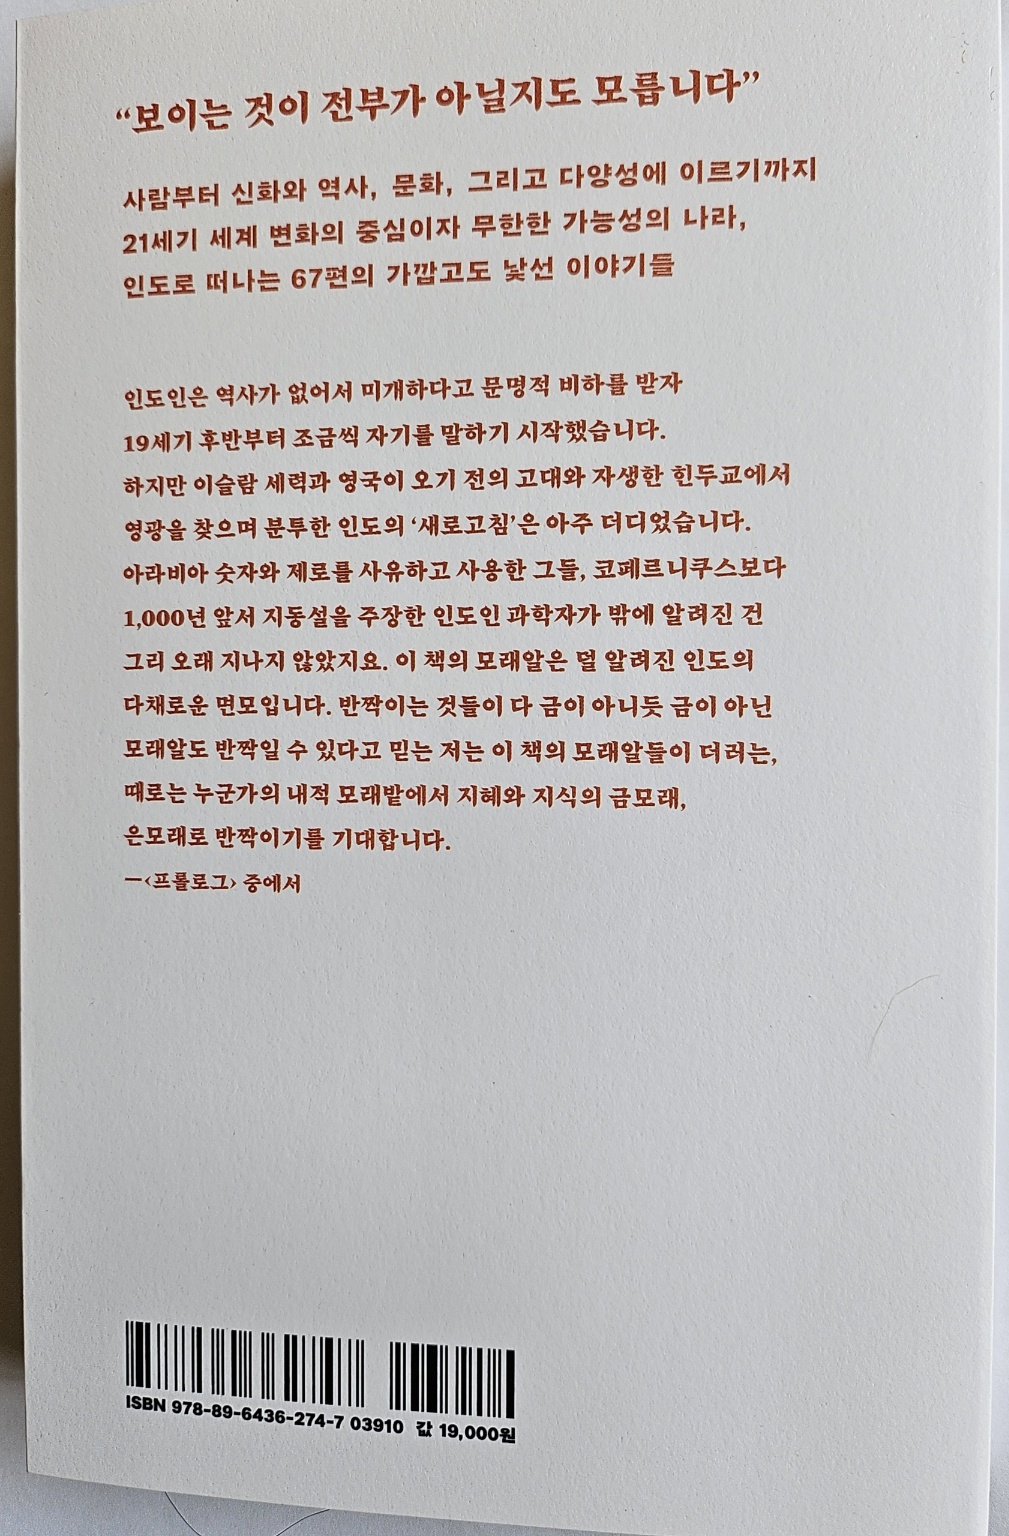 “보이는 것이 전부가 아닐지도 모릅니다”
사람부터 신화와 역사, 문화, 그리고 다양성에 이르기까지
21세기 세계 변화의 중심이자 무한한 가능성의 나라,
인도로 떠나는 67편의 가깝고도 낯선 이야기들
인도인은 역사가 없어서 미개하다고 문명적 비하를 받자
19세기 후반부터 조금씩 자기를 말하기 시작했습니다.
하지만 이슬람 세력과 영국이 오기 전의 고대와 자생한 힌두교에서
영광을 찾으며 분투한 인도의 ‘새로고침’은 아주 더디었습니다.
아라비아 숫자와 제로를 사유하고 사용한 그들, 코페르니쿠스보다
1,000년 앞서 지동설을 주장한 인도인 과학자가 밖에 알려진 건
그리 오래 지나지 않았지요. 이 책의 모래알은 덜 알려진 인도의
다채로운 면모입니다. 반짝이는 것들이 다 금이 아니듯 금이 아닌
모래알도 반짝일 수 있다고 믿는 저는 이 책의 모래알들이 더러는,
때로는 누군가의 내적 모래밭에서 지혜와 지식의 금모래,
은모래로 반짝이기를 기대합니다.
—〈프롤로그〉 중에서
ISBN 978-89-6436-274-7 03910 값 19,000원